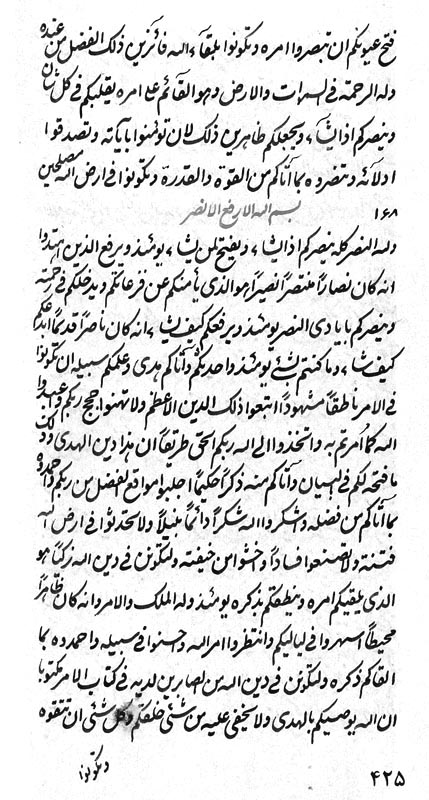 فتح عيونكم ان تبصروا امره وتكونوا بلقاء الله فائزين ذلك الفضل من عنده
وله الرحمة في السموات والارض وهو القائم على امره يقلبكم في كل شان
وينصركم اذا يشاء ويجعلكم طاهرين ذلك لان تؤمنوا بآياته وتصدقوا
ادلائه وتنصروه بما آتاكم من القوة والقدرة وتكونوا في ارض الله مصلحين
١٦٨ بسم الله الارفع الانصر
وله النصر كله ينصركم اذا يشاء ويفتح لمن يشاء يومئذ ويرفع الذين اهتدوا
انه كان نصاراً منتصراً نصيراً هو الذي يأمنكم عن فزعاتكم ويدخلكم في رحمته
وينصركم بايادي النصر يومئذ ويرفعكم كيف يشاء انه كان ناصراً قديماً ابدعكم
كيف شاء وما كنتم بشئ يومئذ واحد بكم وآتاكم هدى وعلمكم سبيله ان تكونوا
في الامر ناطقاً مشهوداً اتبعوا ذلك الدين الاعظم ولا تهنوا حجج ربكم واعبدوا
الله كما امرتم به واتخذوا الى الله ربكم الحق طريقاً ان هذا دين الهدى وذلك
ما فتحه لكم في البيان وآتاكم منه ذكراً حكيماً اجلبوا مواقع الفضل من ربكم واحمدوه
بما آتاكم من فضله واشكروا الله شكراً دائماً جليلاً ولا تحدثوا في ارض الله
فتنة ولا تصنعوا فساداً واخشوا من خيفته ولتكونن في دين الله زكياً هو
الذي يلقيكم امره وينطقكم بذكره يومئذ وله الملك والامر وانه كان ظاهراً
محيطاً اسهروا في لياليكم وانتظروا امر الله وحسنوا في سبيله واحمدوه بما
القاكم ذكره ولتكونن في دين الله من الصابرين لديه في كتاب الامر مكتوبا
ان الله يوصيكم بالهدى ولا يخفى عليه من شئ خلقكم وكل شئ ان تتقوه
وتكونوا
٤٢٥